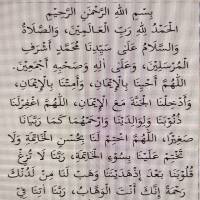 بِسْمِ اللهِ الرَّحْمٰنِ الرَّحِيْمِ
اَلْحَمْدُ لِلّٰهِ رَبِّ الْعَالَمِيْنَ، وَالصَّلَاةُ
وَالسَّلَامُ عَلَى سَيِّدِنَا مُحَمَّدٍ أَشْرَفِ
الْمُرْسَلِيْنَ، وَعَلَى اٰلِهِ وَصَحْبِهِ أَجْمَعِيْنَ.
اَللّٰهُمَّ أَحْيِنَا بِالْإِيْمَانِ، وَأَمِتْنَا بِالْإِيْمَانِ،
وَأَدْخِلْنَا الْجَنَّةَ مَعَ الْإِيْمَانِ، اَللّٰهُمَّ اغْفِرْلَنَا
ذُنُوْبَنَا وَلِوَالِدَيْنَا وَارْحَمْهُمَا كَمَا رَبَّيَانَا
صَغِيْرًا، اَللّٰهُمَّ اخْتِمْ لَنَا بِحُسْنِ الْخَاتِمَةِ وَلَا
تَخْتِمْ عَلَيْنَا بِسُوْءِ الْخَاتِمَةِ، رَبَّنَا لَا تُزِغْ
قُلُوْبَنَا بَعْدَ إِذْ هَدَيْتَنَا وَهَبْ لَنَا مِنْ لَدُنْكَ
رَحْمَةً إِنَّكَ أَنْتَ الْوَهَّابُ، رَبَّنَا اٰتِنَا فِيْ